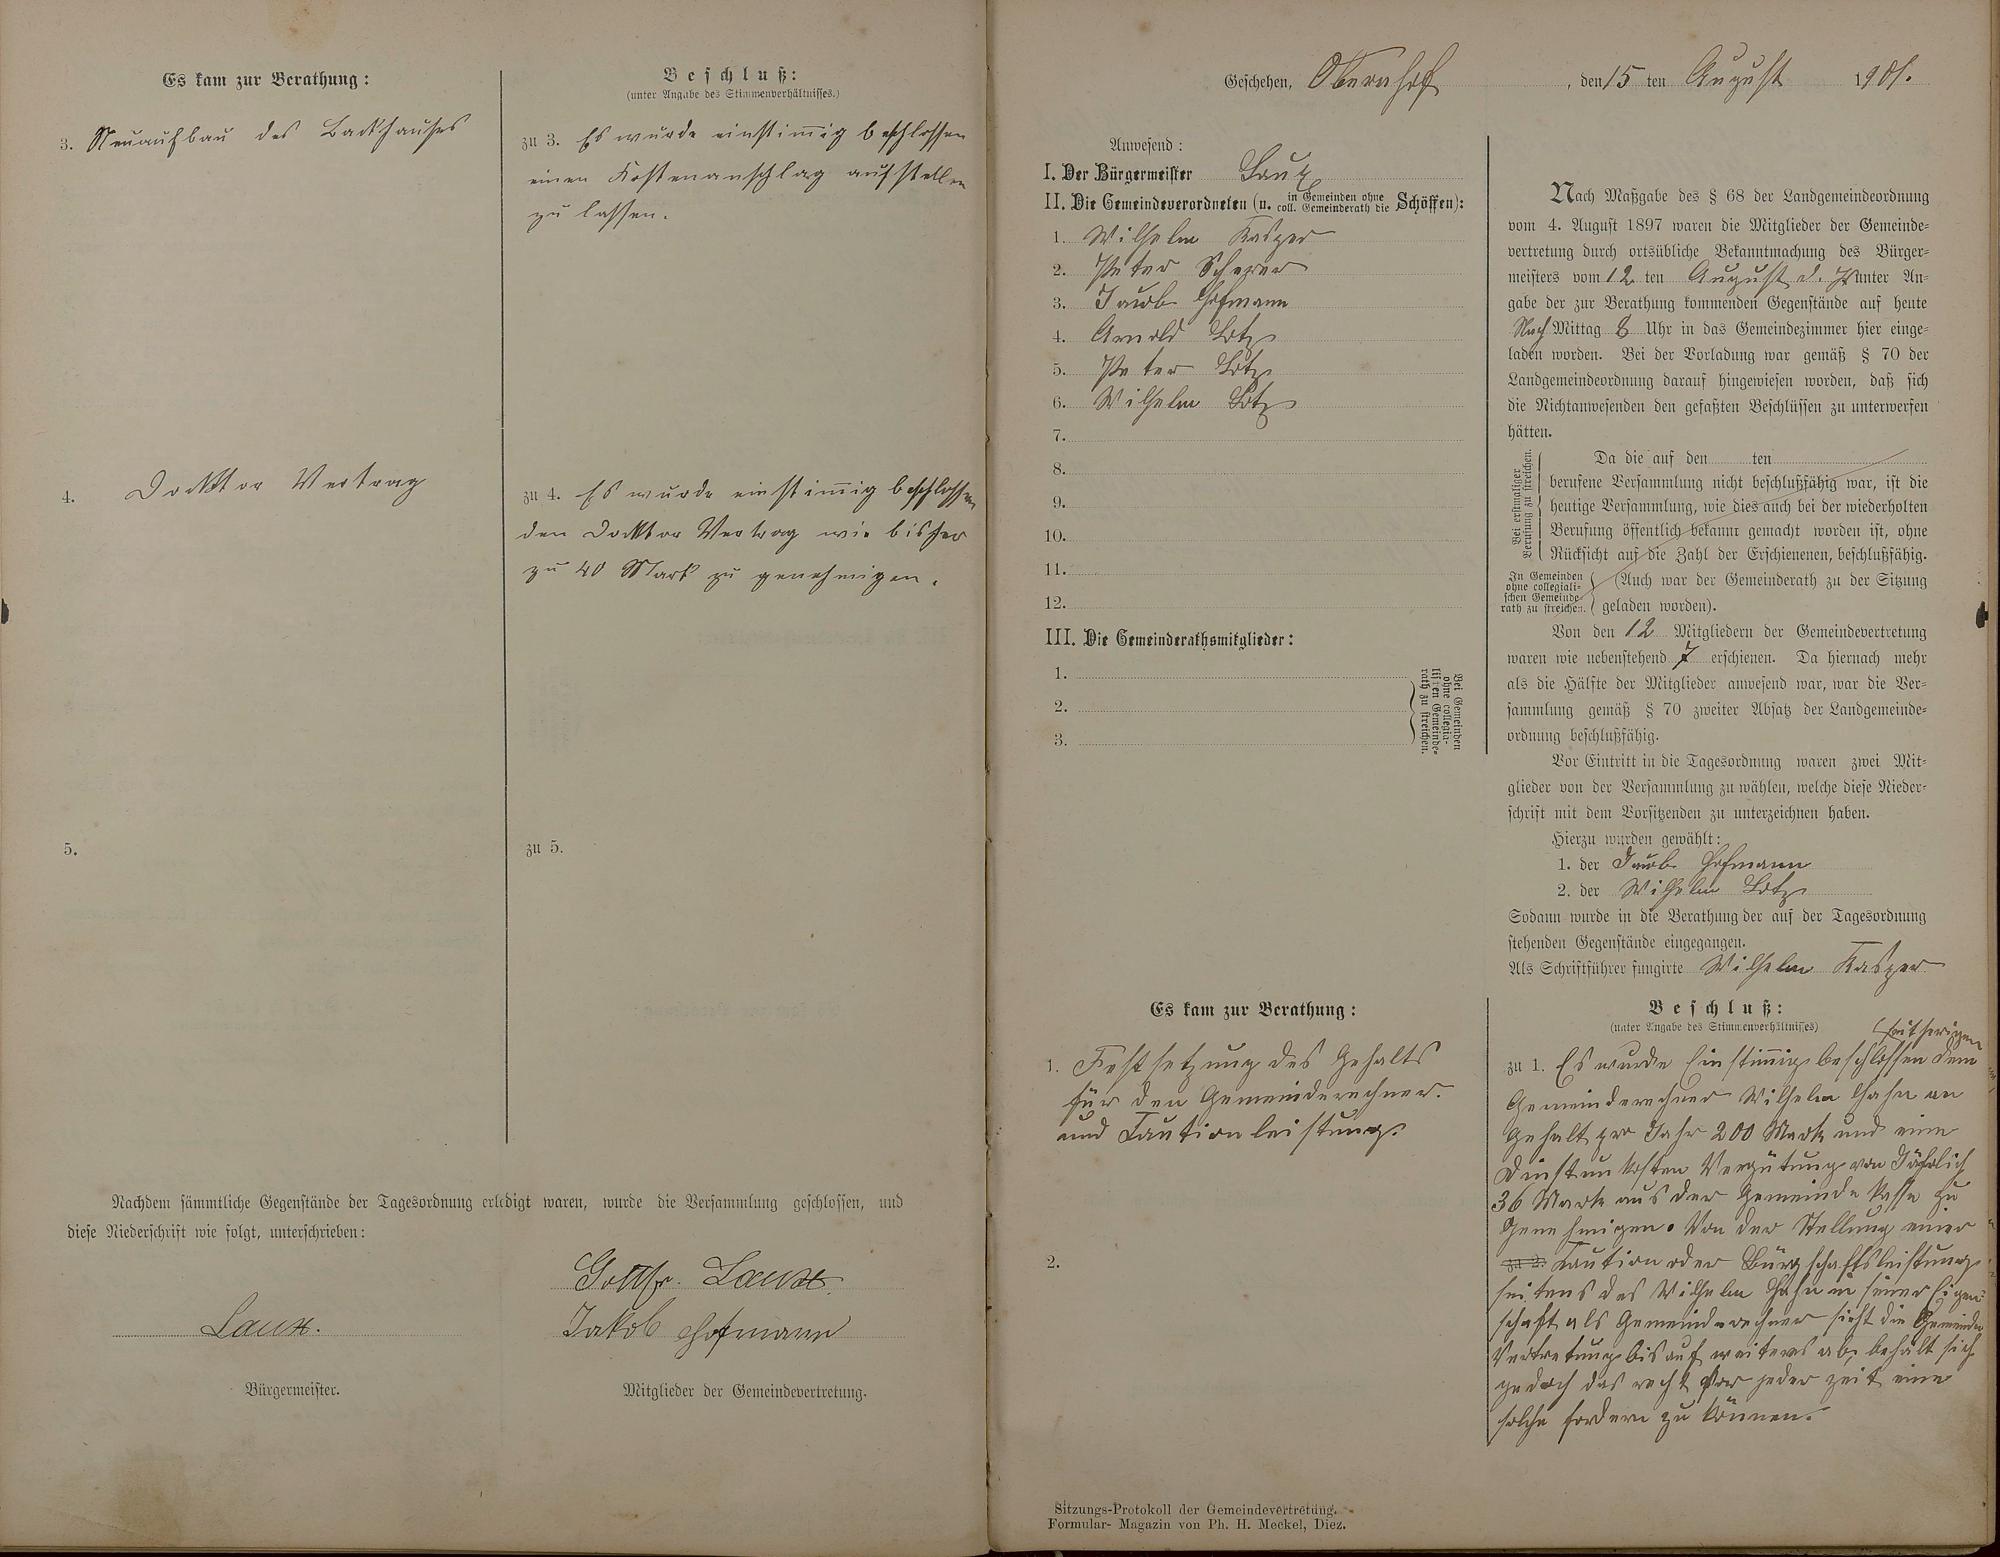 Es kam zur Berathung:
3. Neuaufbau des Backhauses
4. Docktor Vertrag
5.
Beschluß:
(unter Angabe des Stimmenverhältnisses.)
zu 3. Es wurde einstimmig beschlossen
einen Kostenanschlag aufstellen
zu lassen.
zu 4. Es wurde einstimmig beschlossen
den Docktor Vertrag wie bisher
zu 40 Mark zu genehmigen.
zu 5.
Nachdem sämmtliche Gegenstände der Tagesordnung erledigt waren, wurde die Versammlung geschlossen, und
diese Niederschrift wie folgt, unterschrieben:
Gottfr. Laux
Laux.
Jakob Hofmann
Bürgermeister.
Mitglieder der Gemeindevertretung.
Geschehen, Obernhof, den 15 ten August 1901.
Anwesend:
I. Der Bürgermeister Laux
II. Die Gemeindeverordneten (u. in Gemeinden ohne coll. Gemeinderath die Schöffen):
1. Wilhelm Kasper
2. Peter Scherer
3. Jacob Hofmann
4. Arnold Lotz
5. Peter Lotz
6. Wilhelm Lotz
7.
8.
9.
10.
11.
12.
III. Die Gemeinderathsmitglieder:
1.
2.
3.
Bei Gemeinden
ohne collegia-
lischen Gemeinde-
rath zu streichen.
Nach Maßgabe des § 68 der Landgemeindeordnung
vom 4. August 1897 waren die Mitglieder der Gemeinde-
vertretung durch ortsübliche Bekanntmachung des Bürger-
meisters vom 12 ten August d. J. unter An-
gabe der zur Berathung kommenden Gegenstände auf heute
Nach Mittag 8 Uhr in das Gemeindezimmer hier einge-
laden worden. Bei der Vorladung war gemäß § 70 der
Landgemeindeordnung darauf hingewiesen worden, daß sich
die Nichtanwesenden den gefaßten Beschlüssen zu unterwerfen
hätten.
Bei erstmaliger
Berufung zu streichen.
Da die auf den ten
berufene Versammlung nicht beschlußfähig war, ist die
heutige Versammlung, wie dies auch bei der wiederholten
Berufung öffentlich bekannt gemacht worden ist, ohne
Rücksicht auf die Zahl der Erschienenen, beschlußfähig.
In Gemeinden
ohne collegiali-
schen Gemeinde-
rath zu streichen.
(Auch war der Gemeinderath zu der Sitzung
geladen worden).
Von den 12 Mitgliedern der Gemeindevertretung
waren wie nebenstehend 7 erschienen. Da hiernach mehr
als die Hälfte der Mitglieder anwesend war, war die Ver-
sammlung gemäß § 70 zweiter Absatz der Landgemeinde-
ordnung beschlußfähig.
Vor Eintritt in die Tagesordnung waren zwei Mit-
glieder von der Versammlung zu wählen, welche diese Nieder-
schrift mit dem Vorsitzenden zu unterzeichnen haben.
Hierzu wurden gewählt:
1. der Jacob Hofmann
2. der Wilhelm Lotz
Sodann wurde in die Berathung der auf der Tagesordnung
stehenden Gegenstände eingegangen.
Als Schriftführer fungirte Wilhelm Kasper
Es kam zur Berathung:
1. Festsetzung des Gehalts
für den Gemeinderechner.
und Cautionleistung.
2.
Beschluß:
(unter Angabe des Stimmenverhältnisses)
seitherigen
zu 1. Es wurde Einstimmig beschlossen dem
Gemeinderechner Wilhelm Hahn an
Gehalt pro Jahr 200 Mark und eine
Dinstunkosten Vergütung von Jährlich
36 Mark aus der Gemeinde kasse zu
Genehmigen. Von der Stellung einer
zu 2. Kaution oder Bürgschaftsleistung
seitens des Wilhelm Hahn in seiner Eigen-
schaft als Gemeinderechner sieht die Gemeinde
Vertretung bis auf weiteres ab, behält sich
gedoch das recht vor jeder zeit eine
solche fordern zu können.
Sitzungs-Protokoll der Gemeindevertretung.
Formular- Magazin von Ph. H. Meckel, Diez.